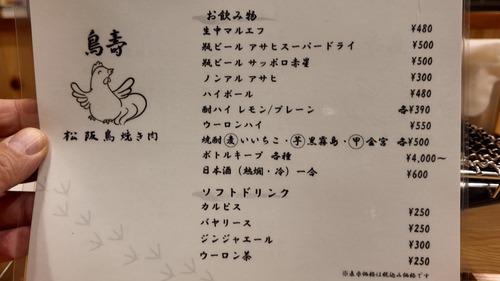 鳥壽
松阪鳥焼き肉
お飲み物
生中マルエフ ¥480
瓶ビール アサヒスーパードライ ¥500
瓶ビール サッポロ赤星 ¥500
ノンアル アサヒ ¥300
ハイボール ¥480
酎ハイ レモン/プレーン 各¥390
ウーロンハイ ¥550
焼酎 麦 いいちこ・芋 黒霧島・甲 金宮 各¥500
ボトルキープ 各種 ¥4,000~
日本酒 (熱燗・冷) 一合 ¥600
ソフトドリンク
カルピス ¥250
バヤリース ¥250
ジンジャエール ¥300
ウーロン茶 ¥250
※表示価格は税込み価格です